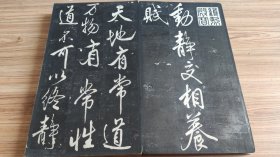 動靜交相養
賦
天地有常道
万物有常性
道不可以終靜